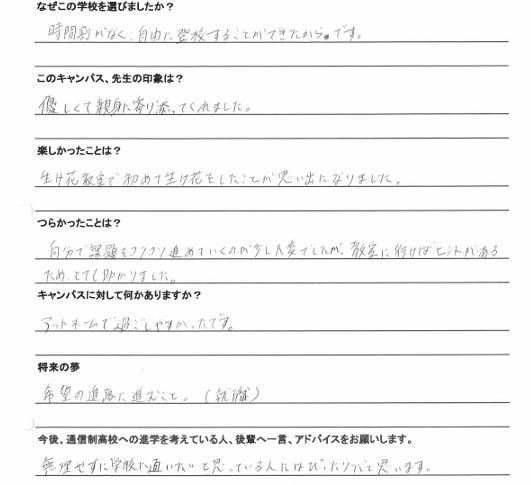 なぜこの学校を選びましたか？
時間割がなく、自由に登校することができたからです。
このキャンパス、先生の印象は？
優しくて親身に寄り添ってくれました。
楽しかったことは？
生け花教室で初めて生け花をしたことが思い出になりました。
つらかったことは？
自分で課題をコツコツ進めていくのが少し大変でしたが、教室に行けばヒントがある
ため、とても助かりました。
キャンパスに対して何かありますか？
アットホームで過ごしやすかったです。
将来の夢
希望の進路に進むこと。（就職）
今後、通信制高校への進学を考えている人、後輩へ一言、アドバイスをお願いします。
無理せずに学校に通いたいと思っている人にはぴったりだと思います。